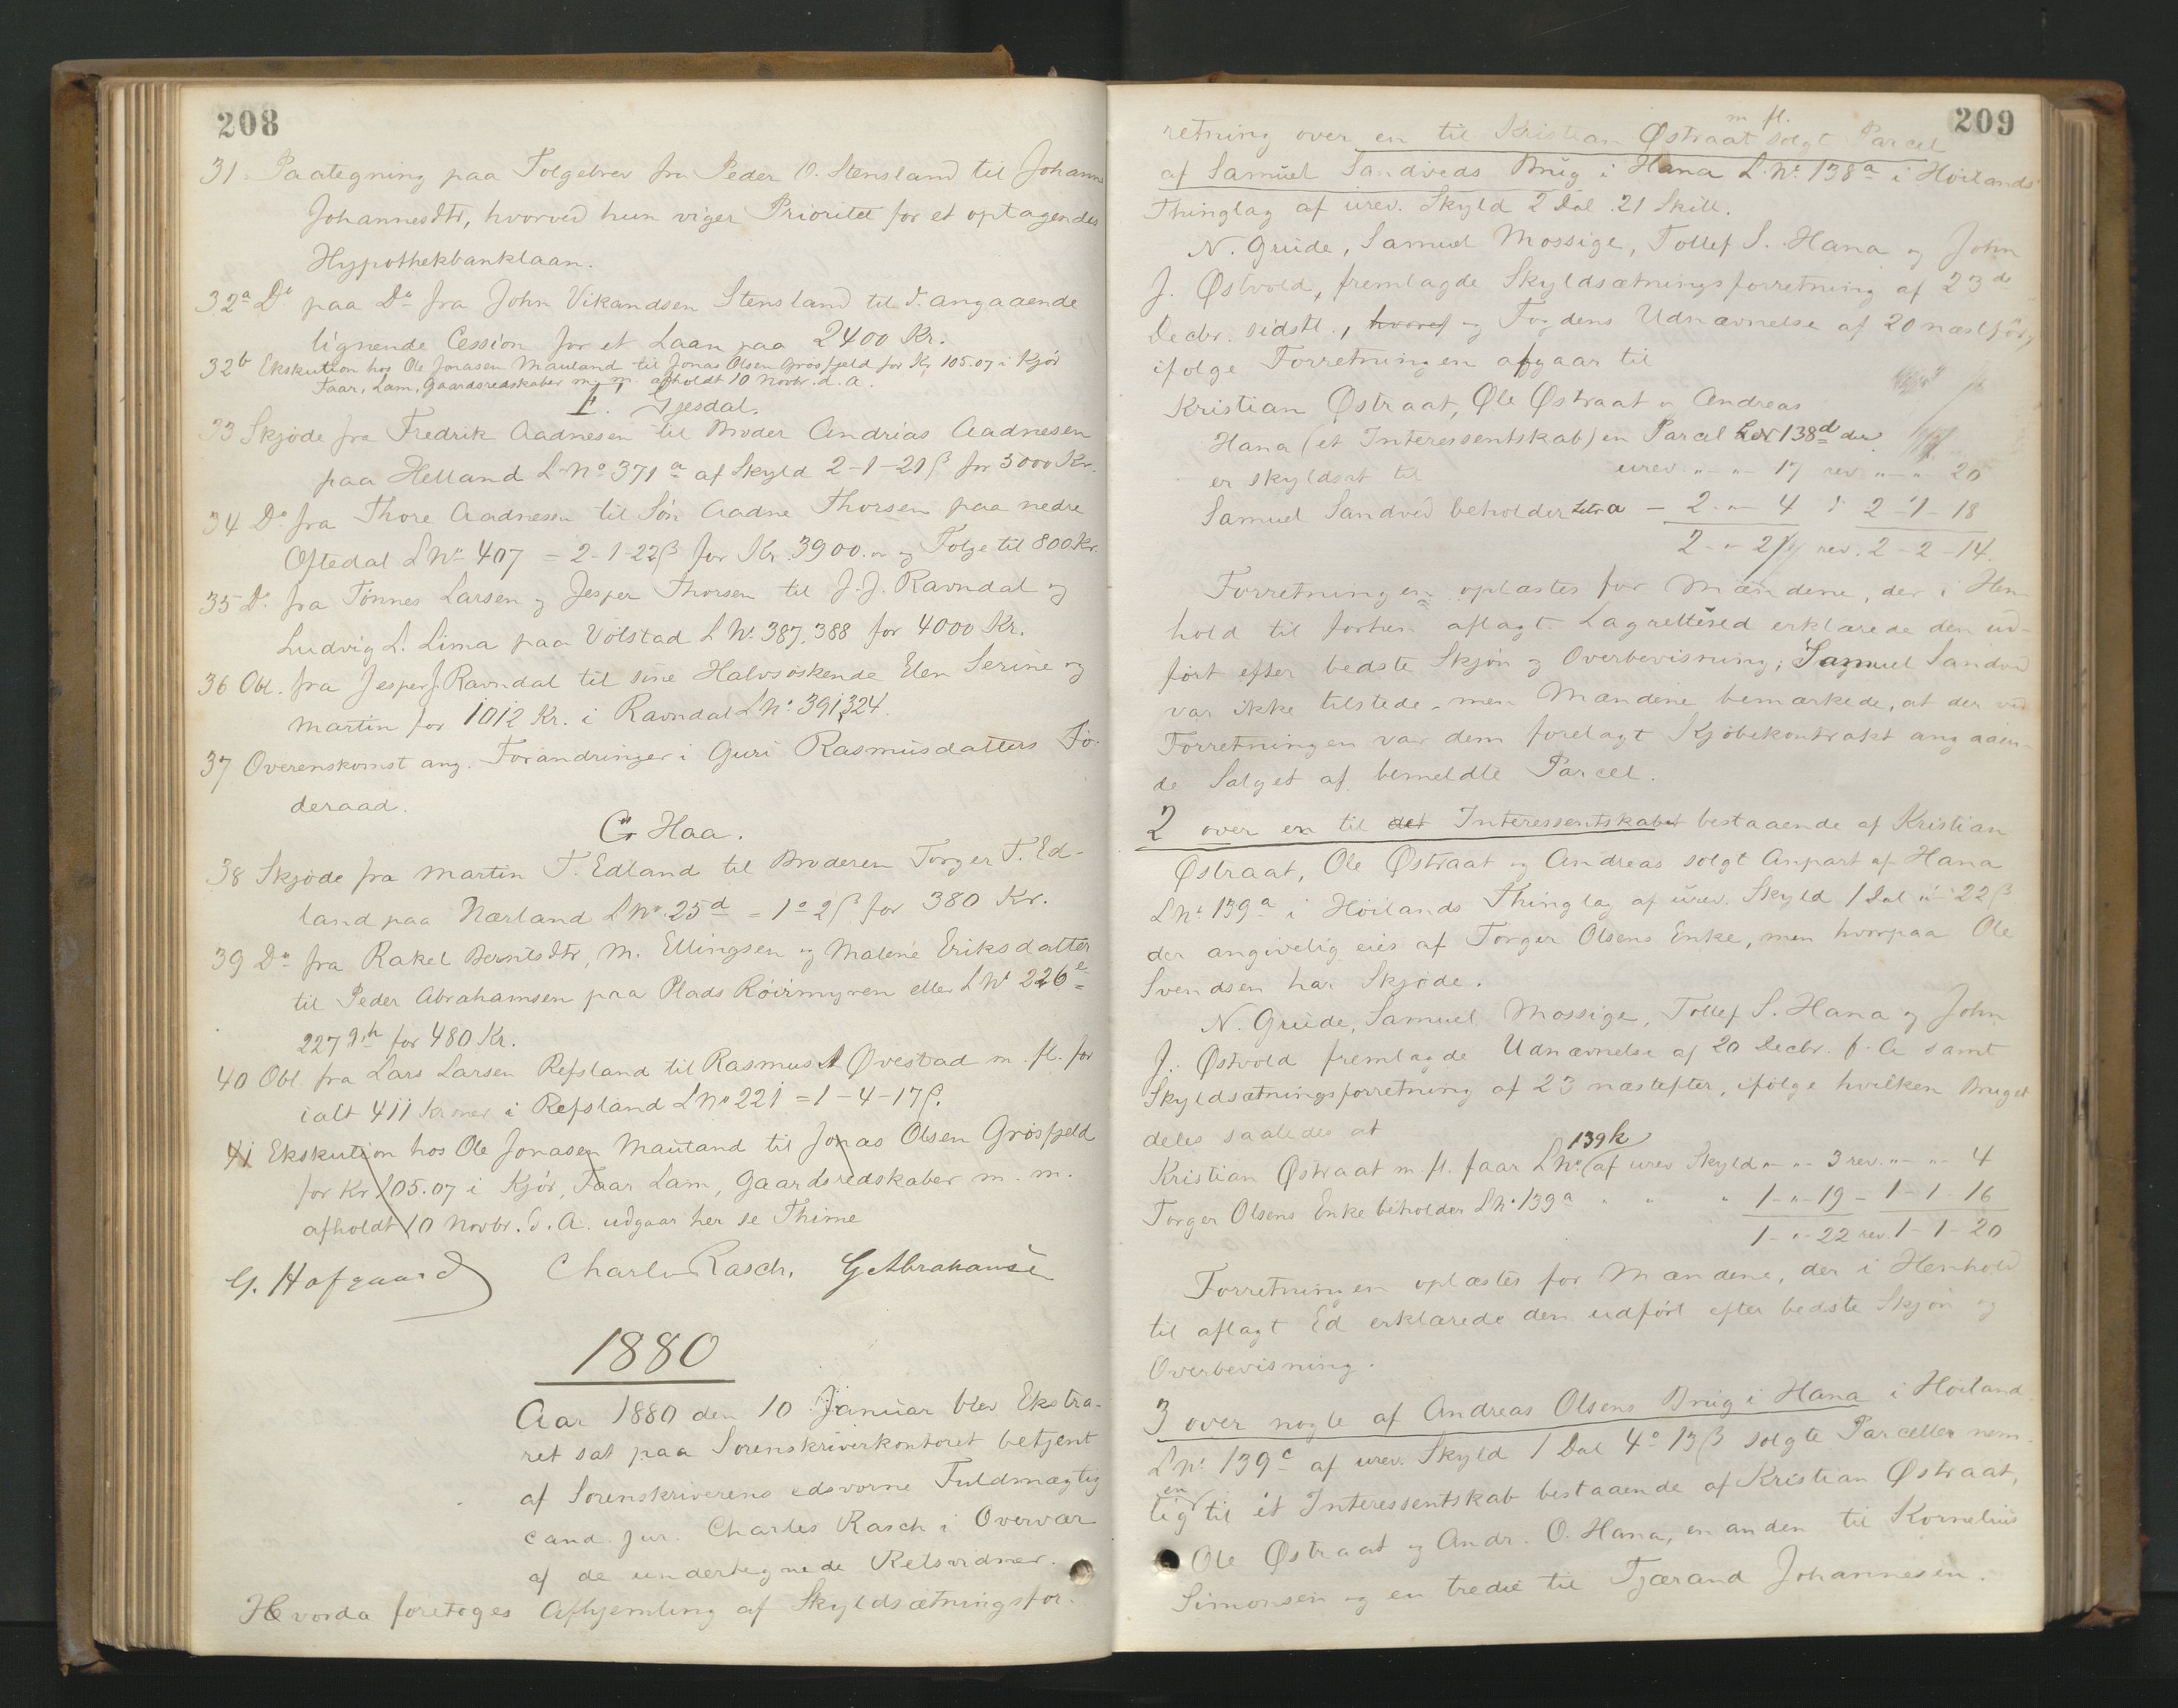 208
31. Paategning paa Folgebrev fra Peder O. Stensland til Johanne
Johannesdtr, hvorved hun viger Prioritet for et optagendes
Hypothekbanklaan.
32a Do paa Do fra John Vikandsen Stensland til d. angaaende
lignende Cession for et Laan paa 2400 Kr.
32b Ekskution hos Ole Jonasen Mauland til Jonas Olsen Grosfjeld for Kr 105.07 i Kjör
Faar, Lam, Gaardsredskaber m. m. afholdt 10 Novbr. d. a.
F. Gjesdal.
33 Skjöde fra Fredrik Aadnesen til Broder Andrias Aadnesen
paa Helland L No 371a af Skyld 2-1-21 ß for 3000 Kr.
34 Do fra Thore Aadnesen til Sön Aadne Thorsen paa nedre
Oftedal L No 407 = 2-1-22 ß for Kr. 3900.00 og Folge til 800 Kr.
35 Do fra Tönnes Larsen og Jesper Thorsen til J. J. Ravndal og
Ludvig L. Lima paa Volstad L No 387.388 for 4000 Kr.
36 Obl. fra Jesper J. Ravndal til sine Halvsöskende Elen Serine og
Martin for 1012 Kr. i Ravndal L No 391,324.
37 Overenskomst ang. Forandringer i Guri Rasmusdatters Fö-
deraad.
G. Haa.
38 Skjöde fra Martin T. Edland til Broderen Torger T. Ed-
land paa Nærland L No 25d = 1o 2 ß for 380 Kr.
39 Do fra Rakel Berntsdtr, M. Ellingsen og Malene Eriksdatter
til Peder Abrahamsen paa Plads Röirmyren eller L No 226e
227 g,h for 480 Kr.
40 Obl. fra Lars Larsen Refsland til Rasmus A Øvestad m. fl. for
ialt 411 Kroner i Refsland L No 221 = 1-4-17 ß.
41 Ekskution hos Ole Jonasen Mauland til Jonas Olsen Grosfjeld
for Kr 105.07 i Kjör, Faar Lam, Gaardsredskaber m. m.
afholdt 10 Novbr. d. A. udgaar her se Thime
G. Hofgaard Charles Rasch. G Abrahamsen
1880
Aar 1880 den 10 Januar blev Ekstra-
ret sat paa Sorenskriverkontoret betjent
af Sorenskriverens edsvorne Fuldmægtig
cand. jur. Charles Rasch i Overvær
af de undertegnede Retsvidner.
Hvorda foretoges Afhjemling af Skyldsætningsfor-
209
retning over en til Kristian Østraat m fl. solgt Parcel
af Samuel Sandveds Brug i Hana L. No 138a i Höilands
Thinglag af urev. Skyld 2 Dal. 21 Skill.
N. Grude, Samuel Mossige, Tollef S. Hana og John
J. Østvold, fremlagde Skyldsætningsforretning af 23de
Decbr. sidstl., hvoref og Fogdens Udnævnelse af 20 næstför,
ifolge Forretningen afgaar til
Kristian Østraat, Ole Østraat og Andreas
Hana (et Interessentskab) en Parcel L No 138d der
er skyldsat til urev. " - " - 17 rev. " - " - 20
Samuel Sandved beholder Litra a - 2 - " - 4 : 2 - 1 - 18
2 - " - 21 rev. 2 - 2 - 14.
Forretningen oplæstes for Mændene, der i Hen-
hold til forhen aflagt Lagretteed erklærede den ud-
fört efter bedste Skjön og Overbevisning; Samuel Sandved
var ikke tilstede, men Mændene bemærkede, at der ved
Forretningen var dem forelagt Kjöbekontrakt angaaen-
de Salget af bemeldte Parcel.
2 over en til det Interessentskabet bestaaende af Kristian
Østraat, Ole Østraat og Andreas solgt Anpart af Hana
L No 139a i Höilands Thinglag af urev. Skyld 1 Dal " - 22 ß
der angivelig eies af Torger Olsens Enke, men hvorpaa Ole
Svendsen har Skjöde.
N. Grude, Samuel Mossige, Tollef S. Hana og John
J. Østvold fremlagde Udnævnelse af 20 Decbr. f. A samt
Skyldsætningsforretning af 23 næstefter, ifölge hvilken Bruget
deles saaledes at
Kristian Østraat m. fl. faar L No 139k af urev Skyld " - " - 3 rev. " - " - 4
Torger Olsens Enke beholder L No 139a " " " 1 - " - 19 - 1 - 1 16
1 - " - 22 rev. 1 - 1 - 20
Forretningen oplæstes for Mændene, der i Henhold
til aflagt Ed erklærede den udfört efter bedste Skjön og
Overbevisning.
3 over nogle af Andreas Olsens Brug i Hana i Höiland
L No 139c af urev. Skyld 1 Dal 4o 13 ß solgte Parceller nem-
lig en til et Interessentskab bestaaende af Kristian Østraat,
Ole Østraat og Andr. O. Hana, en anden til Kornelius
Simonsen og en tredie til Tjærand Johannesen.